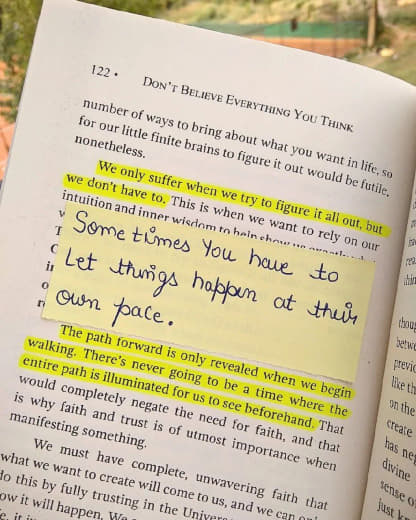 122 • DON'T BELIEVE EVERYTHING YOU THINK
number of ways to bring about what you want in life, so
for our little finite brains to figure it out would be futile,
nonetheless.
We only suffer when we try to figure it all out, but
we don't have to. This is when we want to rely on our
intuition and inner wisdom to help show us
Sometimes You have to
Let things happen at their
own pace.
The path forward is only revealed when we begin
walking. There's never going to be a time where the
entire path is illuminated for us to see beforehand. That
would completely negate the need for faith, and that
is why faith and trust is of utmost importance when
manifesting something.
We must have complete, unwavering faith that
what we want to create will come to us, and we can
do this by fully trusting in the Univers
ow it will happen. We
thou
betw
previo
like th
on the
create
has neg
divine
sense o
just kn